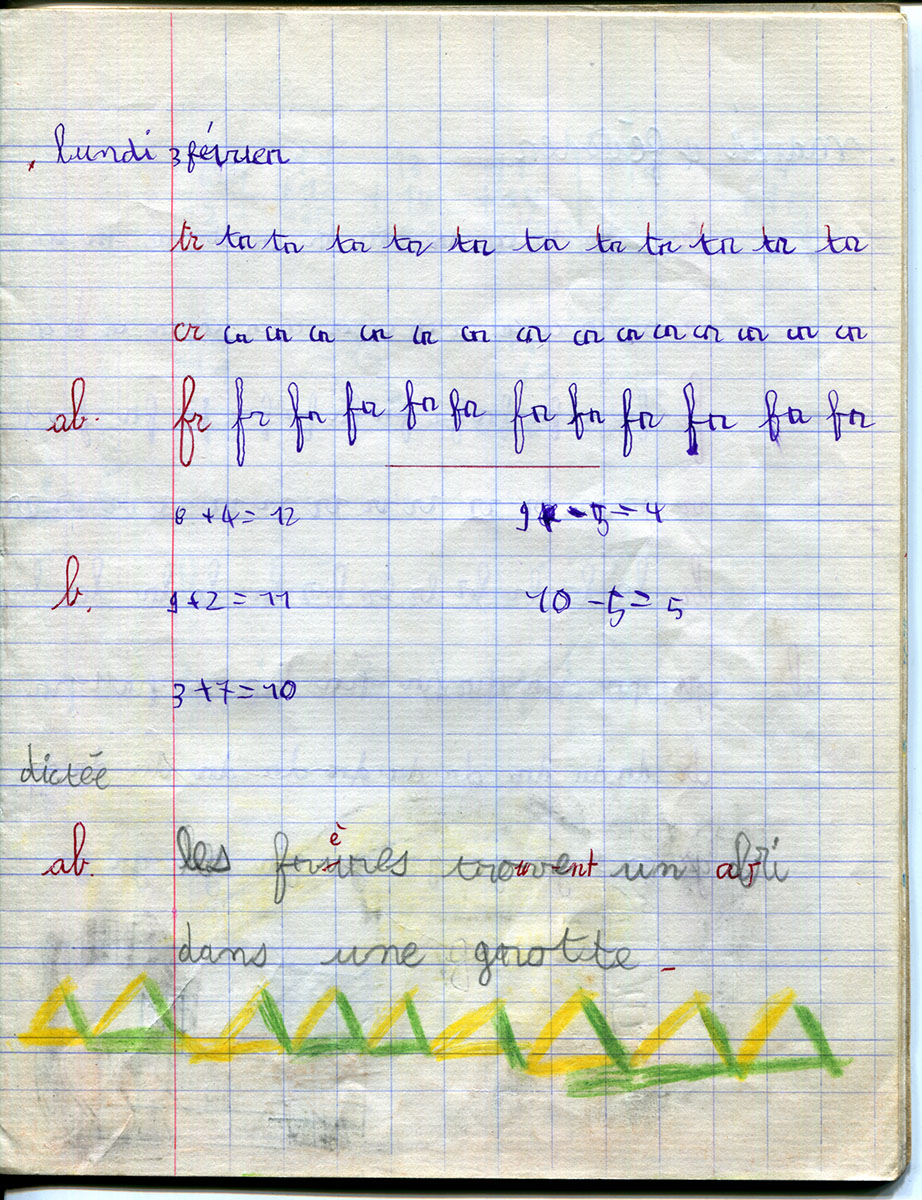 lundi 3 février
tr tr tr tr tr tr tr tr tr tr tr tr
cr cr cr cr cr cr cr cr cr cr cr cr cr cr cr
ab. fr fr fr fr fr fr fr fr fr fr fr fr
8 + 4 = 12 9 - 5 = 4
b. 9 + 2 = 11 10 - 5 = 5
3 + 7 = 10
dictée
ab. les frères trouvent un abri
dans une grotte